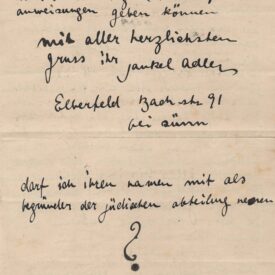 anweisungen geben können
mit aller herzlichsten
gruss ihr jankel adler
Elberfeld Bachstr 91
bei sünn
darf ich ihren namen mit als
begründer der jüdischen abteilung nennen
?